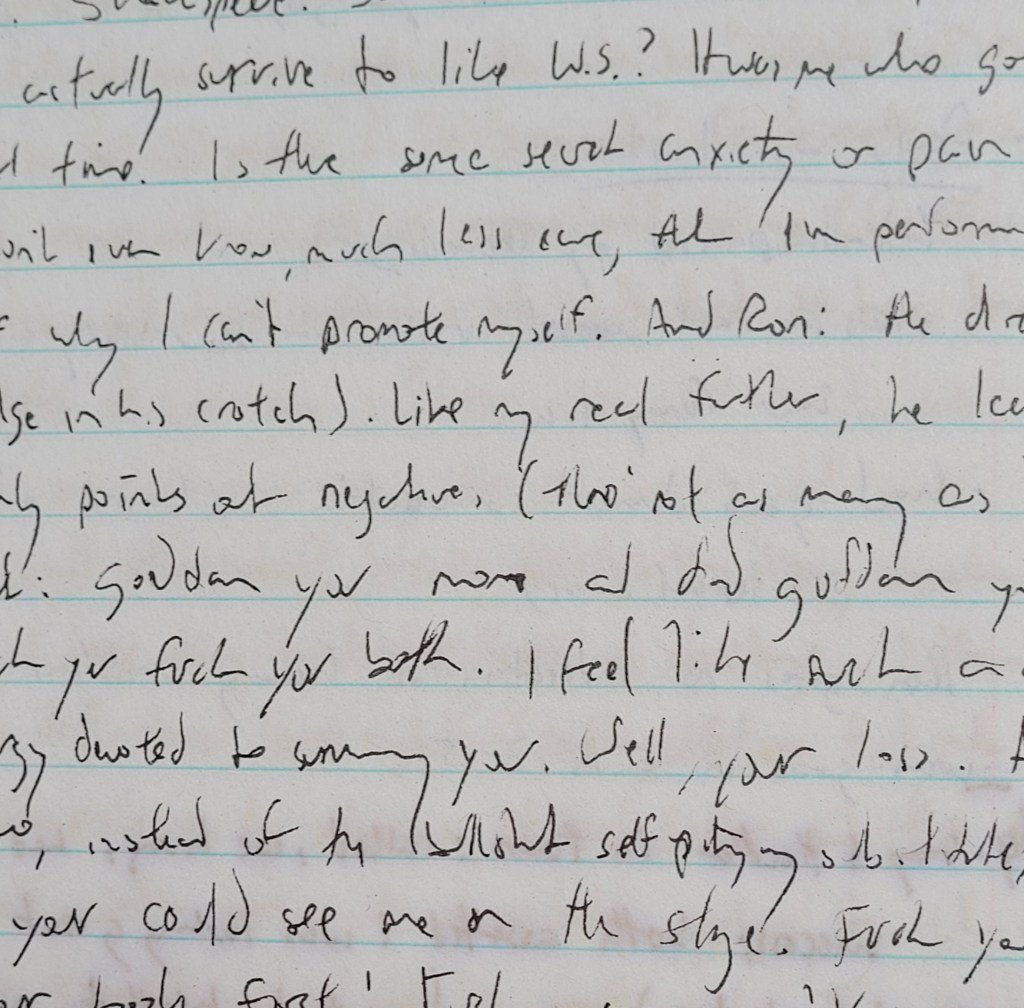 actually survive to like W.S.? It was me who
time. Is the same secret anxiety or pain
even know, much less care, that I'm
why I can't promote myself. And Ron: the
in his crotch). Like my real father, he
points out negatives (tho' not as many as
goddam you mom and dad goddam
you fuck you both. I feel like such a
devoted to summoning you. Well, your loss.
instead of the bullshit self pitying substitute,
you could see me on the stage. Fuck